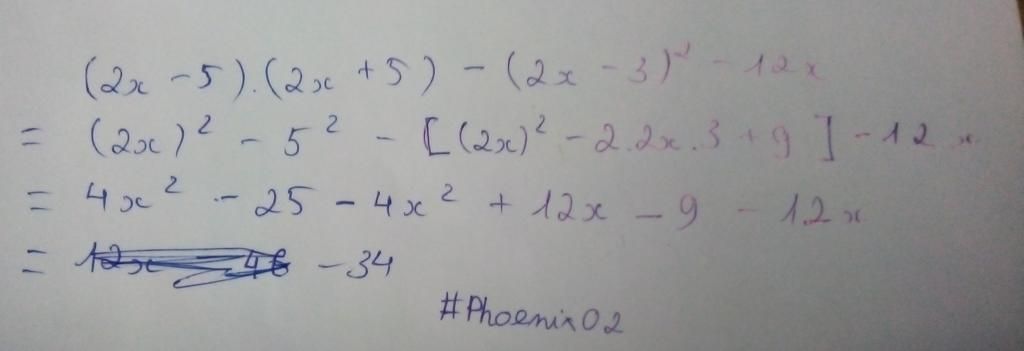 (2x - 5).(2x + 5) - (2x - 3)² - 12x
= (2x)² - 5² - [(2x)² - 2.2x.3 + 9] - 12x
= 4x² - 25 - 4x² + 12x - 9 - 12x
= -34
#Phoenix02